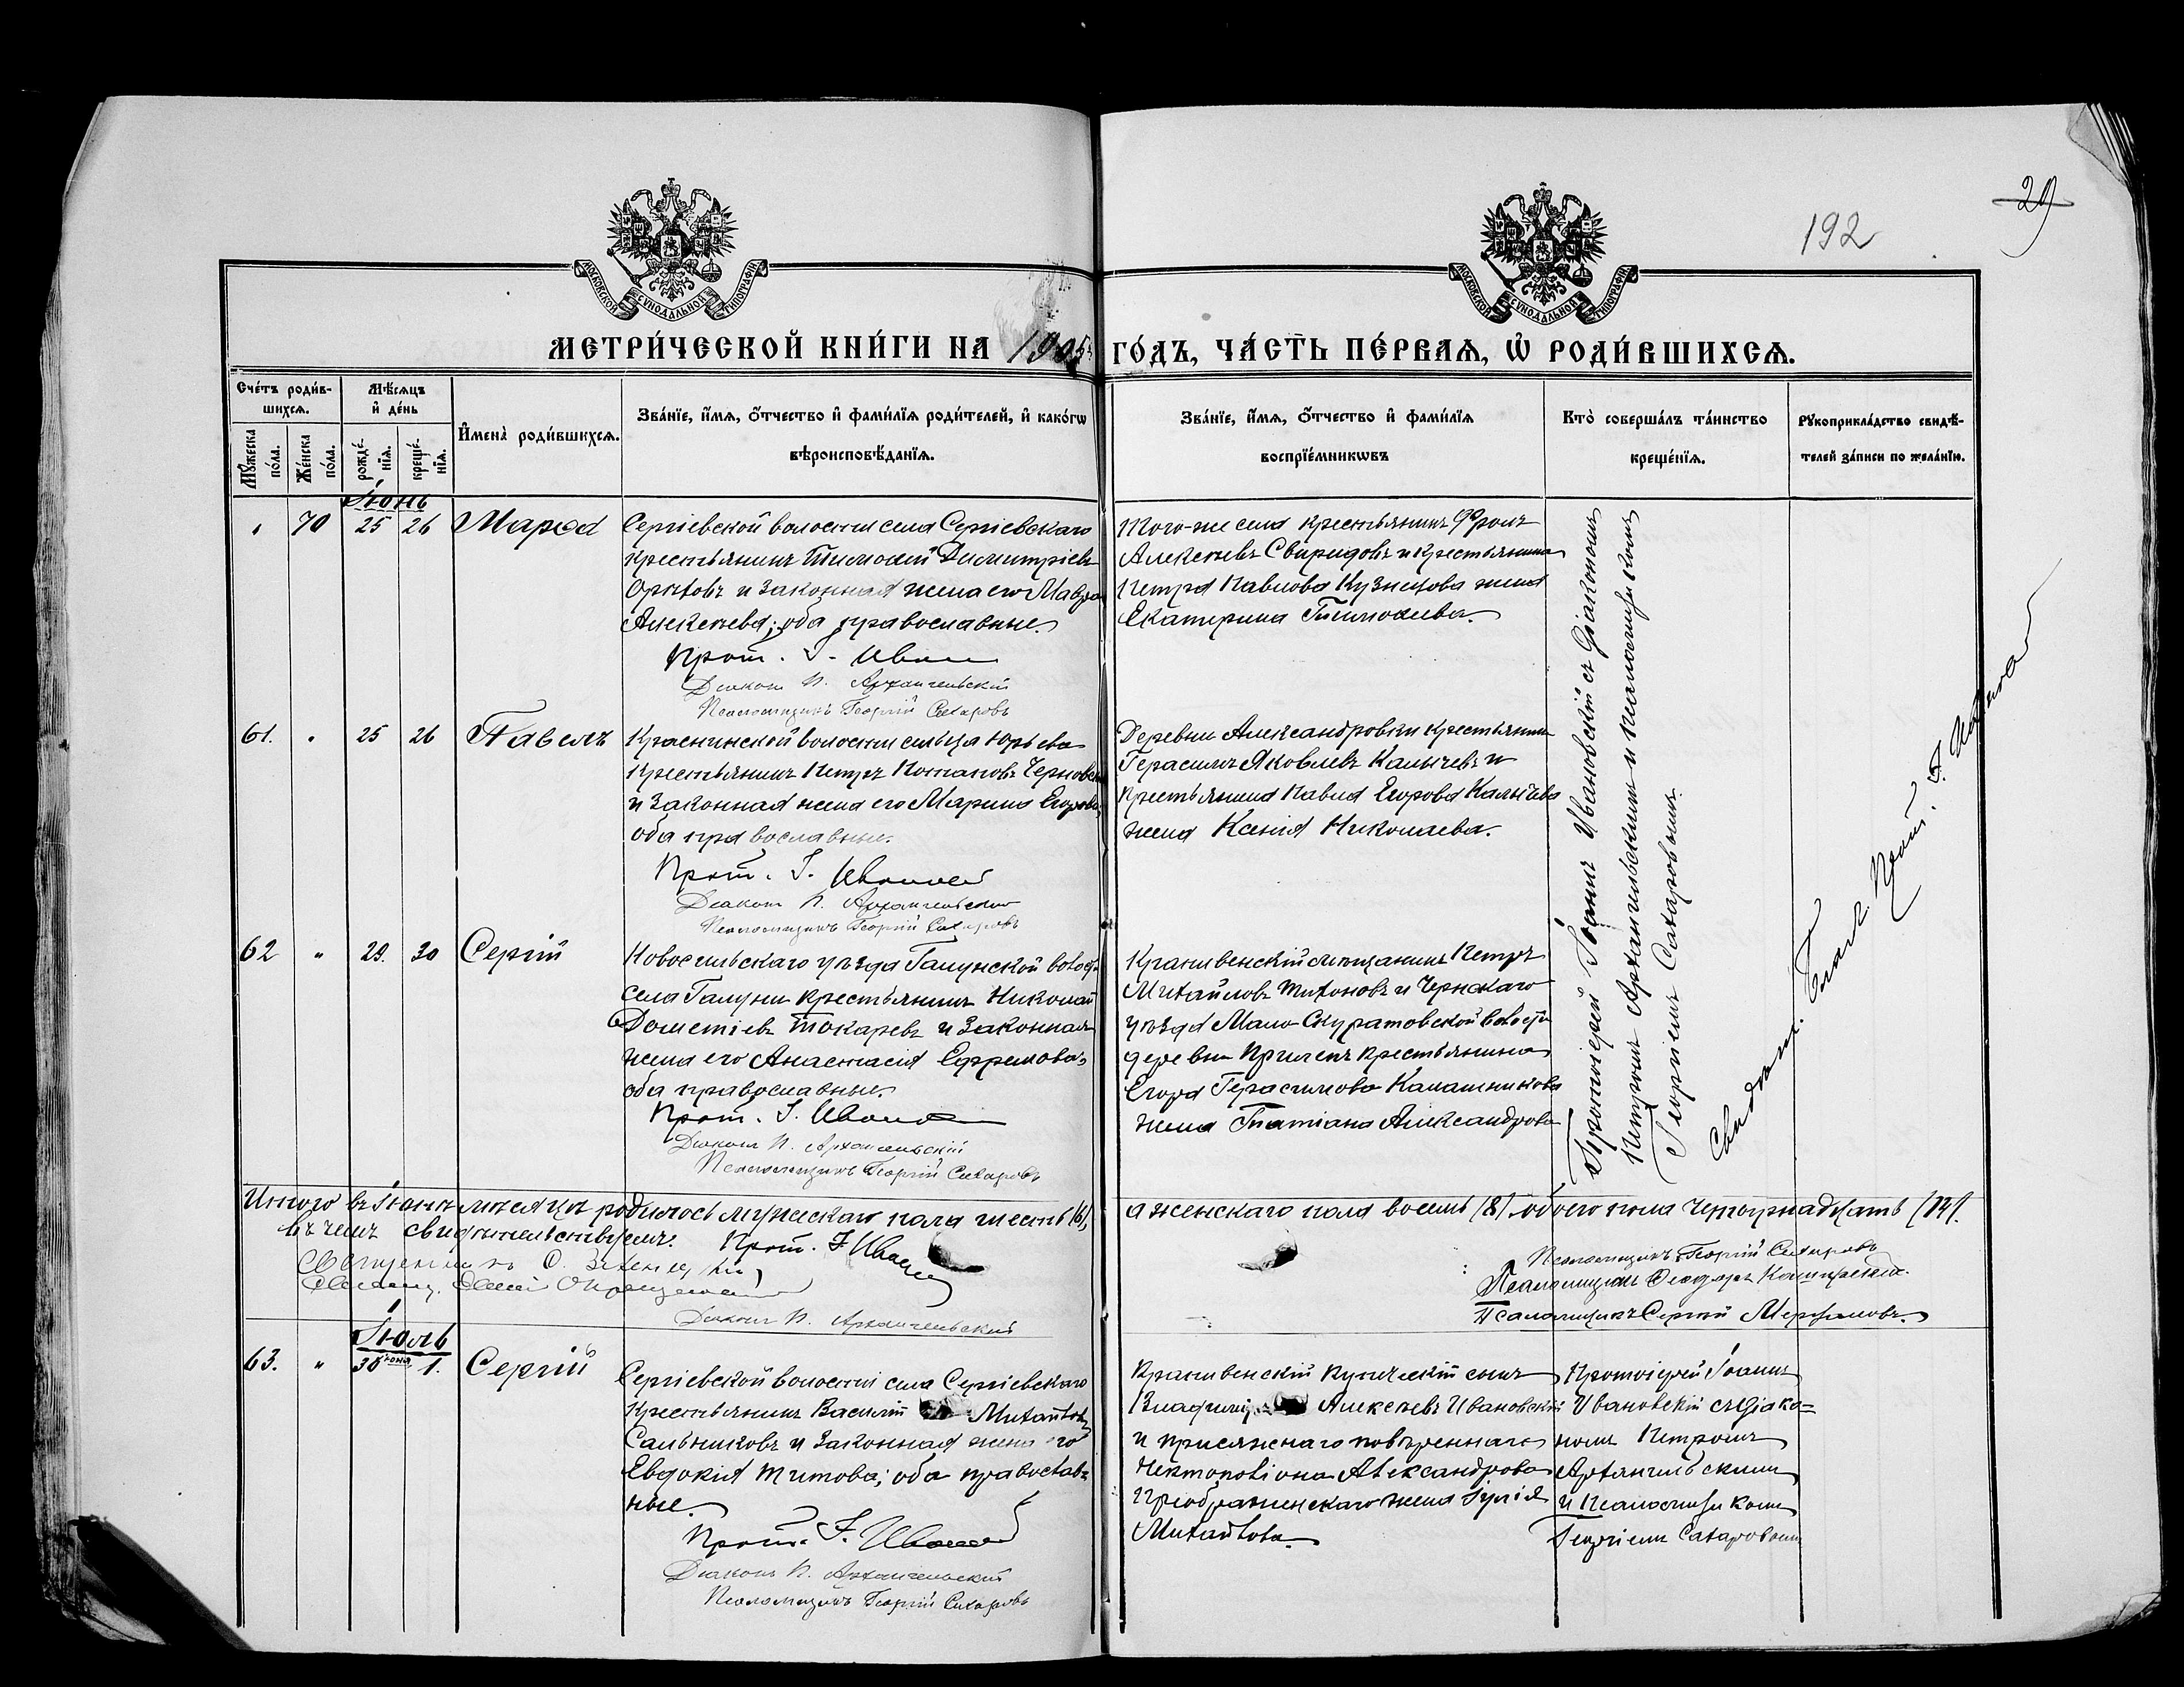 192
29
МОСКОВСКОЙ СѴНОДАЛЬНОЙ ТИПОГРАФІИ
МОСКОВСКОЙ СѴНОДАЛЬНОЙ ТИПОГРАФІИ
МЕТРИ́ЧЕСКОЙ КНИ́ГИ НА 1905 ГО́ДЪ, ЧА́СТЬ ПЕ́РВАѦ, Ѽ РОДИ́ВШИХСѦ.
Счéтъ роди́в-
шихсѧ.
Мѣ́сѧцъ
и҆ де́нь
И҆мена̀ роди́вшихсѧ.
Зва́нїе, и҆́мѧ, ѻ҆́тчество и҆ фами́лїѧ роди́телей, и҆ како́гѡ
вѣроисповѣ́данїѧ.
Зва́нїе, и҆́мѧ, ѻ҆́тчество и҆ фами́лїѧ
воспрїе́мникѡвъ
Кто̀ соверша́лъ та́инство
креще́нїѧ.
Рꙋкоприкла́дство свидѣ́-
телей за́писи по жела́нїю.
Мꙋ́жеска
по́ла.
Же́нска
по́ла.
рожде́-
нїѧ.
креще́-
нїѧ.
Іюнь
70 25 26 Марѳа
Сергіевской волости села Сергіевскаго
крестьянинъ Тимоѳей Димитріевъ
и законная жена его Мавра
Алексѣева; оба православные.
Прот. І. Иванов
Діаконъ П. Архангельскій
Псаломщикъ Георгій Сахаровъ
Того-же села крестьянинъ Фролъ
Алексѣевъ Свиридовъ и крестьянина
Петра Павлова Кузнецова жена
Екатерина Тимоѳеева.
Протоіерей Іоаннъ Ивановскій съ діакономъ
Петромъ Архангельскимъ и псаломщикомъ
Георгіемъ Сахаровымъ.
61. 25 26 Павелъ
Красинской волости сельца Юрьева
крестьянинъ Петръ Потаповъ
и законная жена его Марина Егорова,
оба православные.
Прот. І. Иванов
Діаконъ П. Архангельскій
Псаломщикъ Георгій Сахаровъ
Деревни Александровки крестьянинъ
Герасимъ Яковлевъ Калычевъ и
крестьянина Павла Егорова Калычева
жена Ксенія Николаева.
62 " 29. 30 Сергій
Новосильскаго уѣзда Галунской волости
села Галуни крестьянинъ Николай
Дометіевъ Токаревъ и законная
жена его Анастасія Ефремова,
оба православные.
Прот. І. Иванов
Діаконъ П. Архангельскій
Псаломщикъ Георгій Сахаровъ
Крапивенскій мѣщанинъ Петръ
Михайловъ Тихоновъ и Чернскаго
уѣзда Мало-Скуратовской волости
деревни Прилепъ крестьянина
Егора Герасимова Калашникова
жена Татіана Александрова
Итого въ Іюнѣ мѣсяцѣ родилось мужескаго пола шесть (6), а женскаго пола восемь (8) обоего пола четырнадцать (14).
въ чемъ свидѣтельствуемъ: Прот. І. Иванов
Діаконъ П. Архангельскій
Псаломщикъ Георгій Сахаровъ
Псаломщикъ Ѳеодоръ
Псаломщикъ Сергій
Іюль
63. " 30 іюня 1. Сергій
Сергіевской волости села Сергіевскаго
крестьянинъ Василій Михайловъ
Сальниковъ и законная жена его
Евдокія Титова; оба православ-
ные.
Прот. І. Иванов
Діаконъ П. Архангельскій
Псаломщикъ Георгій Сахаровъ
Крапивенскій купеческій сынъ
Алексѣевъ Ивановскій
и присяжнаго повѣреннаго
Александрова
Преображенскаго жена Іулія
Михайлова.
Протоіерей Іоаннъ
Ивановскій съ діако=
номъ Петромъ
Архангельскимъ
и псаломщикомъ
Георгіемъ Сахаровымъ